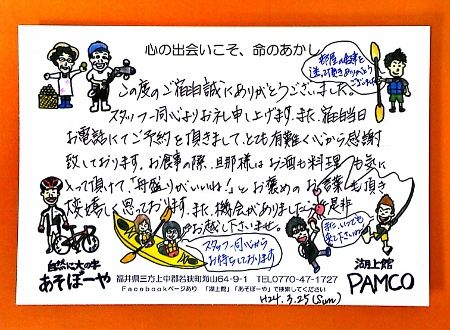 心の出会いこそ、命のあかし
この度のご宿泊誠にありがとうございました。
スタッフ一同心よりお礼申し上げます。また、宿泊当日
お電話にてご予約を頂きまして、とても有難く心から感謝
致しております。お食事の際、旦那様はお酒も料理も気に
入って頂けて、「舟盛りがいいね!」とお褒めのお言葉も頂き
大変嬉しく思っております。また、機会がありましたら是非
お越し下さいませ。
スタッフ一同心から
お待ちしております
また、いつでも
自然に大の字
あそぼーや
湖上館
PAMCO
福井県三方上中郡若狭町海山64-9-1 TEL0770-47-1727
Facebookページあり 「湖上館」「あそぼーや」で検索してください
H24.3.25(Sun)